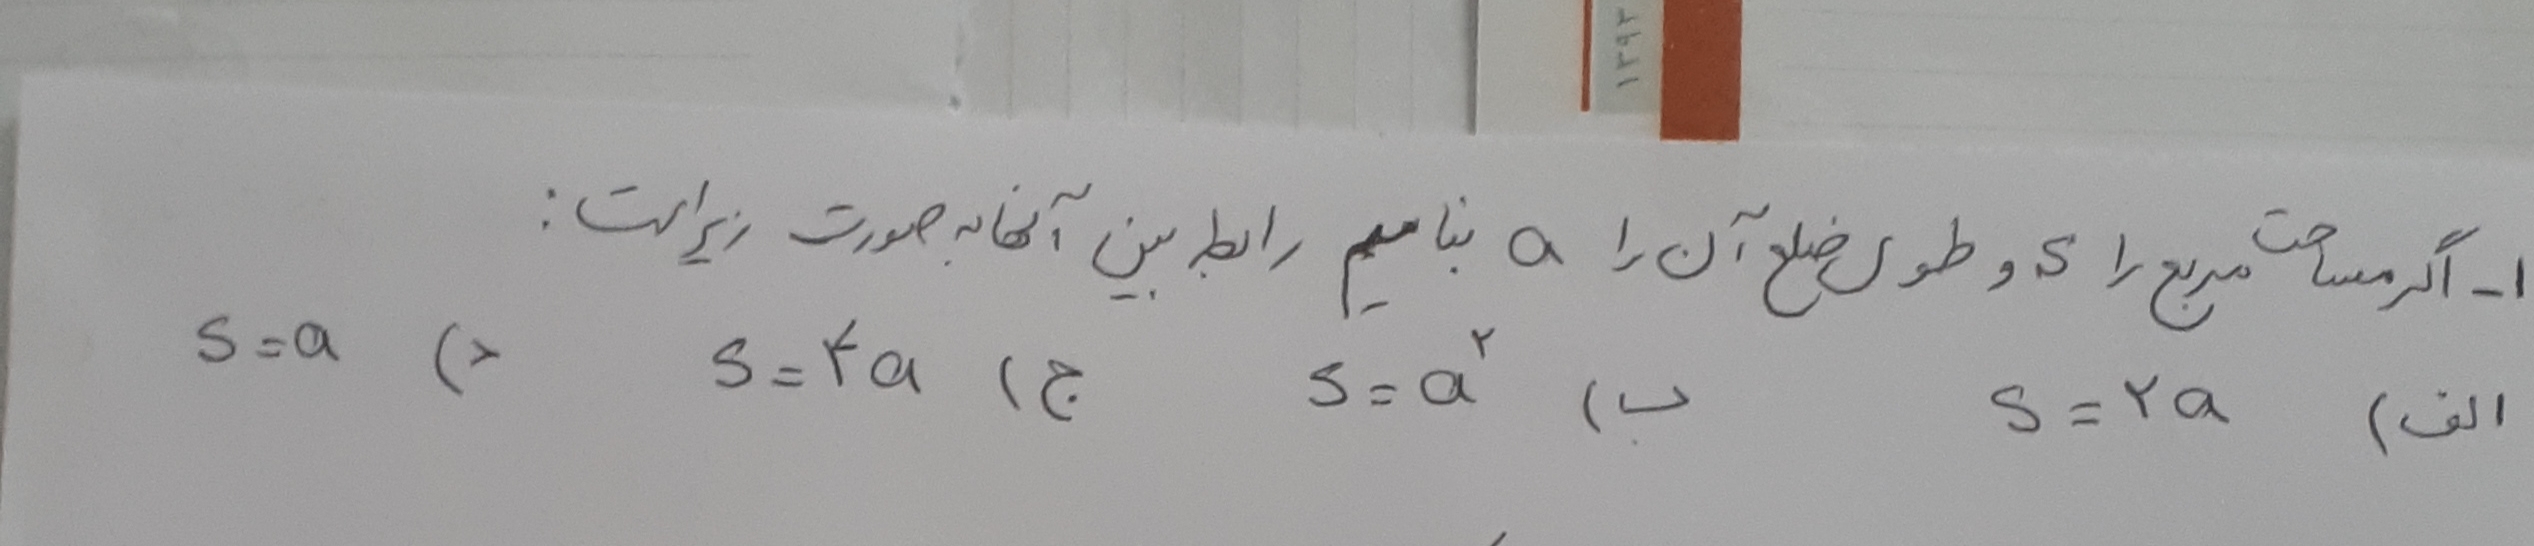 ۱۳۹۲
۱- اگر مساحت مربع را S و طول ضلع آن را a بنامیم رابطه بین آنها به صورت زیر است:
الف) S = ۲a ب) S = a^۲ ج) S = ۴a د) S = a